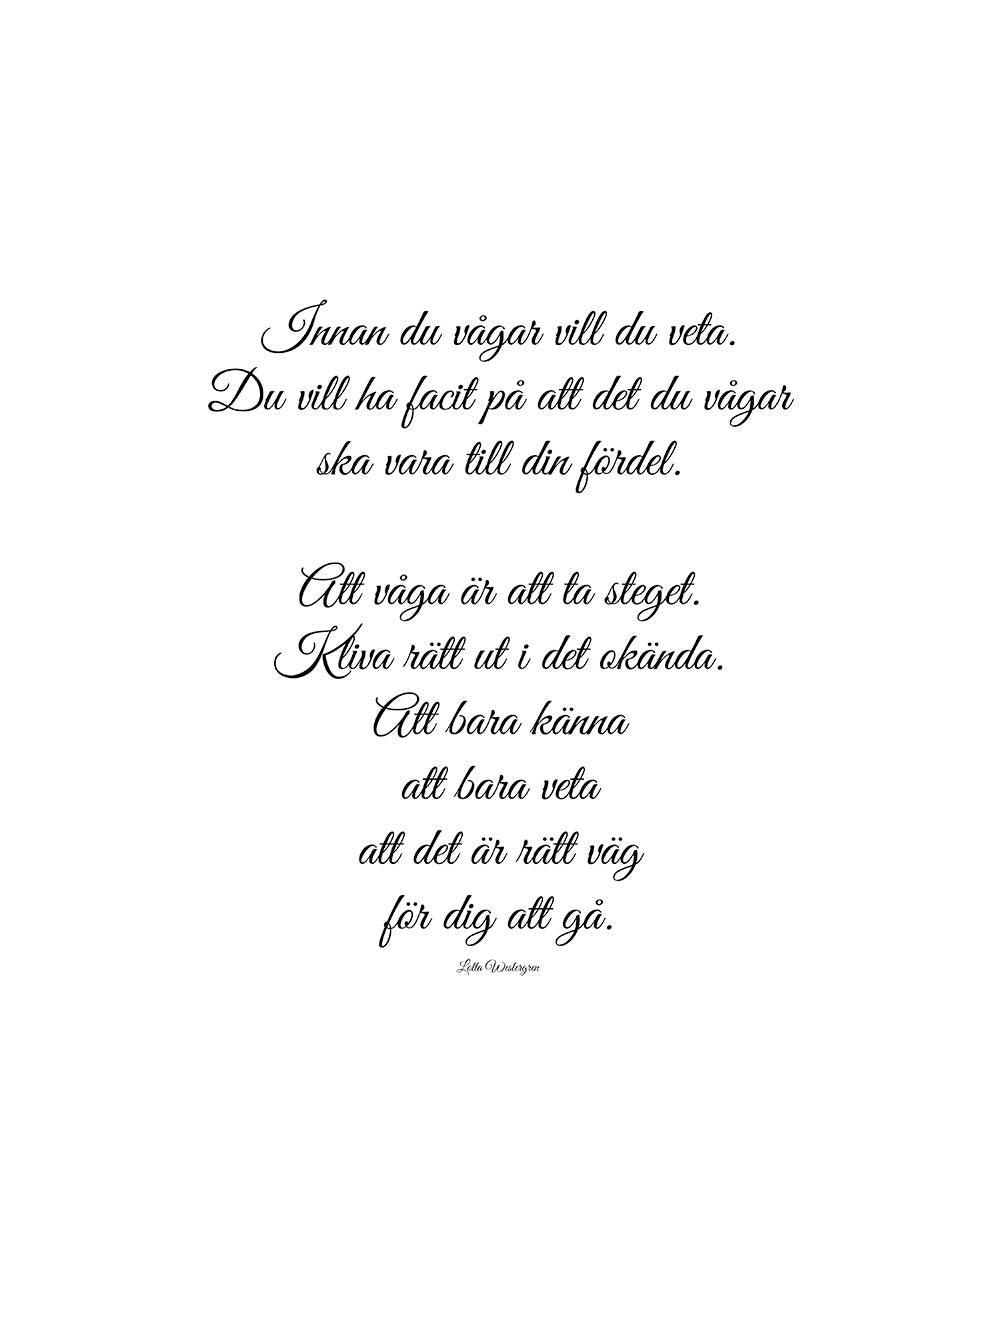 Innan du vågar vill du veta.
Du vill ha facit på att det du vågar
ska vara till din fördel.
Att våga är att ta steget.
Kliva rätt ut i det okända.
Att bara känna
att bara veta
att det är rätt väg
för dig att gå.
Lotta Westergren